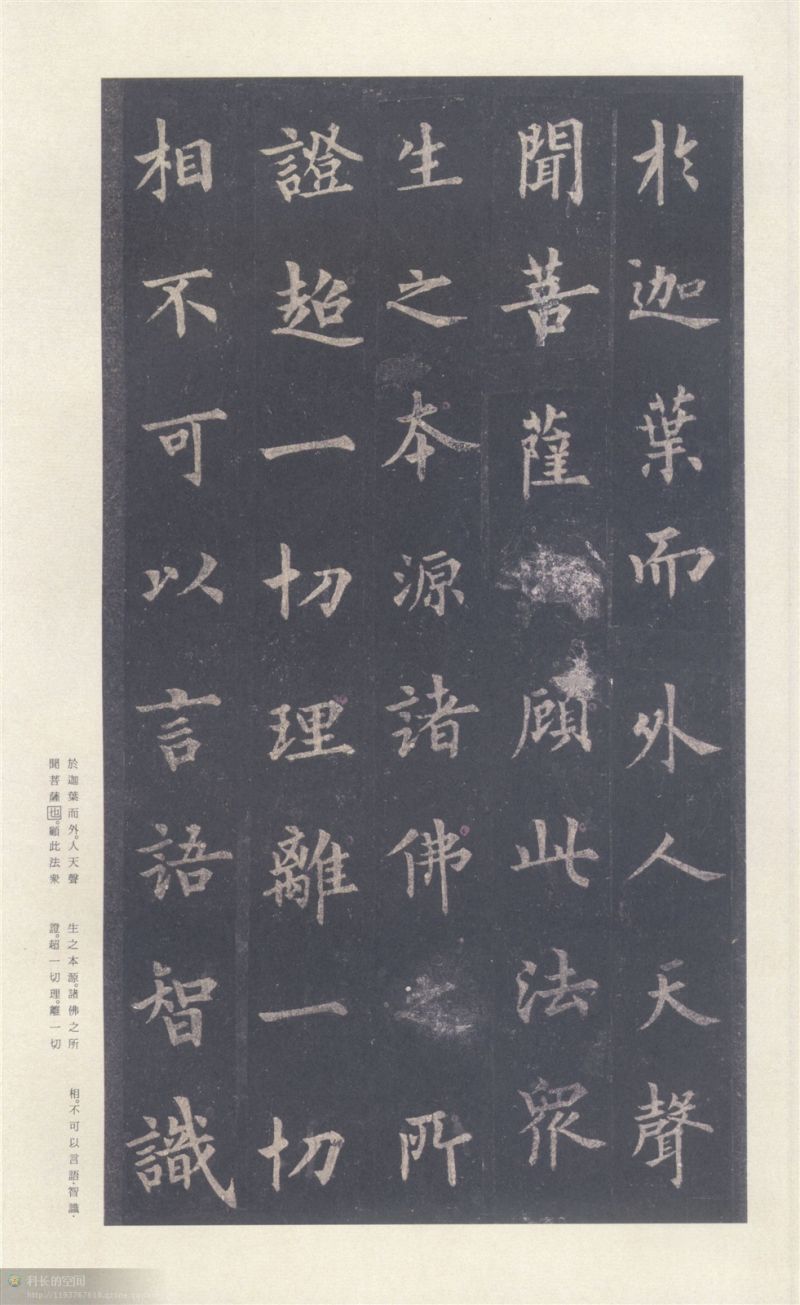 於迦葉而外人天聲
聞菩薩顧此法眾
生之本源諸佛之所
證超一切理離一切
相不可以言語智識
於迦葉而外。人天聲
聞菩薩也。顧此法衆
生之本源。諸佛之所
證。超一切理。離一切
相。不可以言語、智識、
科长的空间